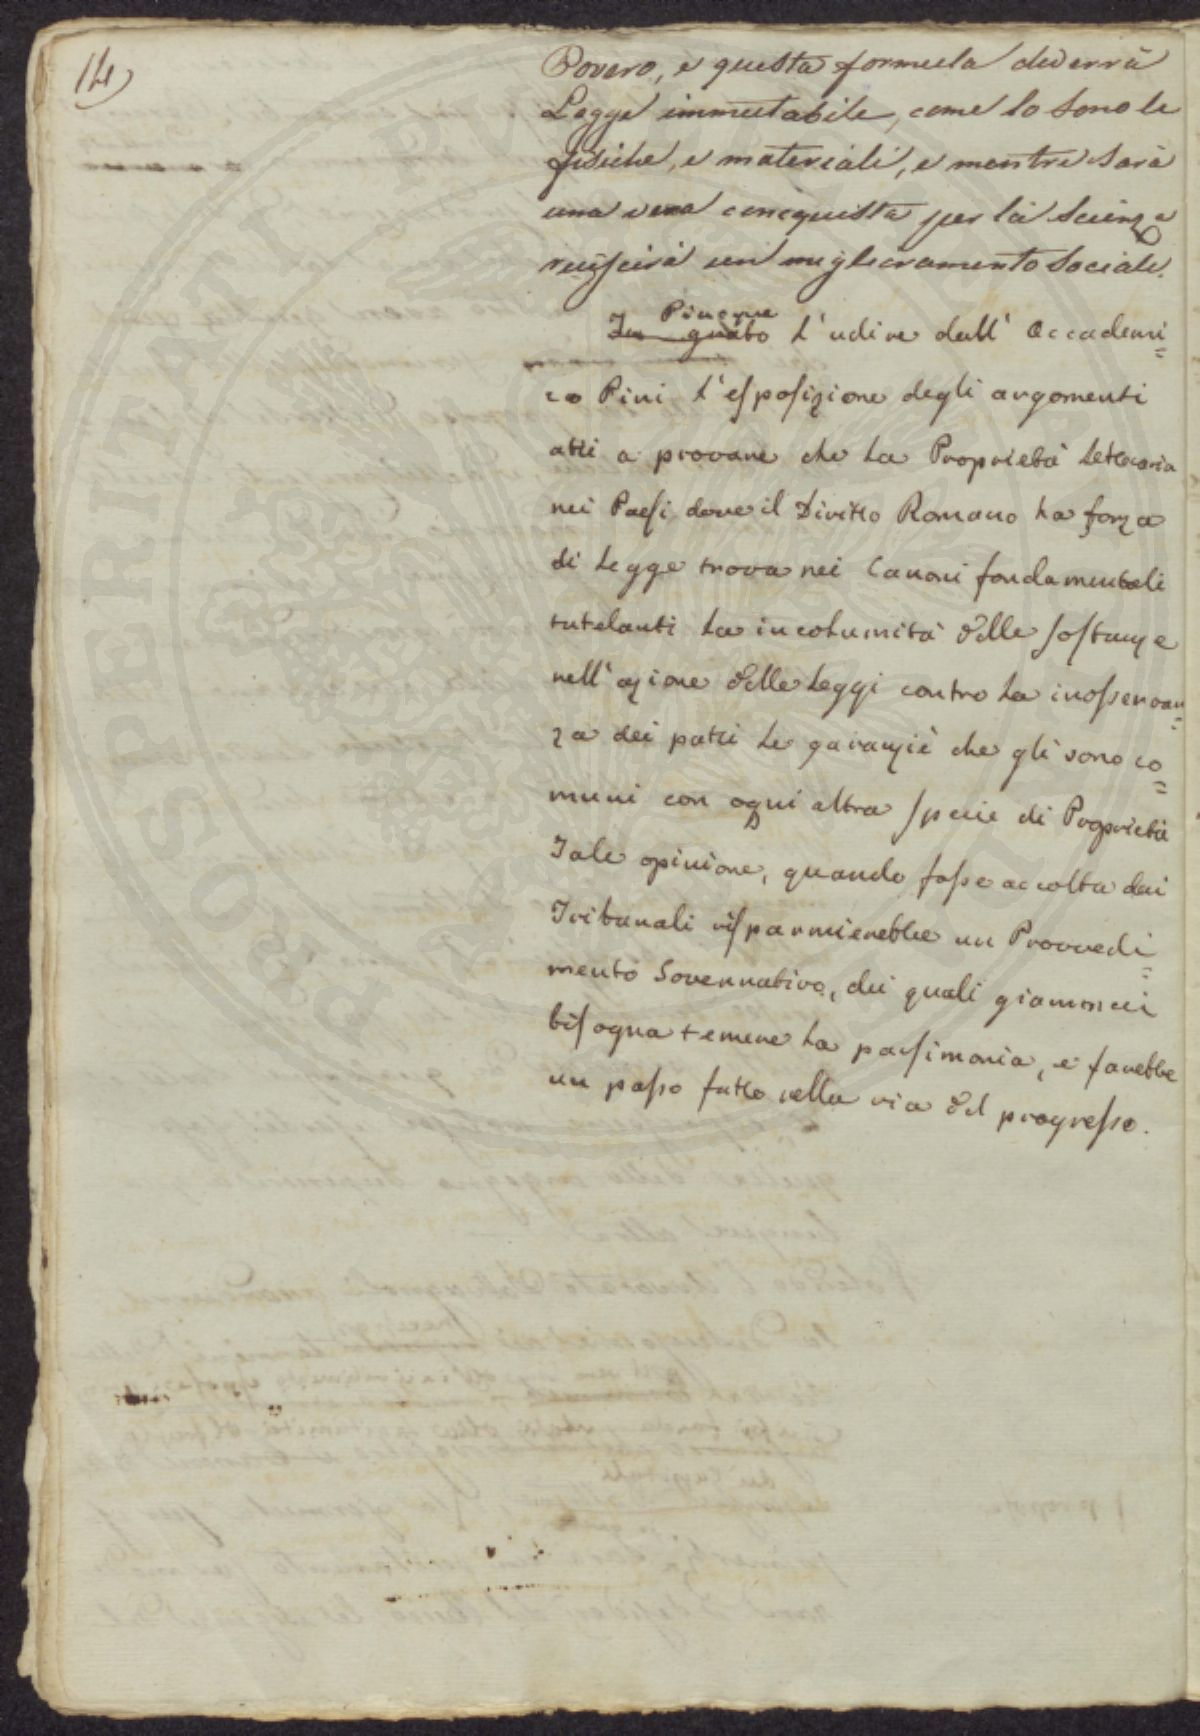 14)
Povero, e questa formula diverrà
Legge immutabile, come lo sono le
fisiche, e materiali, e mentre sarà
una vera conquista per la Scienza
riuscirà un miglioramento Sociale.
Piacque
In grato l'udire dall' Accademi=
co Pini l'esposizione degli argomenti
atti a provare che la Proprietà letteraria
nei Paesi dove il Diritto Romano ha forza
di legge trova nei Canoni fondamentali
tutelanti la incolumità delle sostanze
nell'azione delle leggi contro la inosservan=
za dei patti le garanzie che gli sono co=
muni con ogni altra specie di Proprietà
Tale opinione, quando fosse accolta dai
Tribunali risparmierebbe un Provvedi=
mento Governativo, dei quali giammai
bisogna temere la parsimonia, e farebbe
un passo fatto nella via del progresso.
PROSPERITATI PUBLICAE